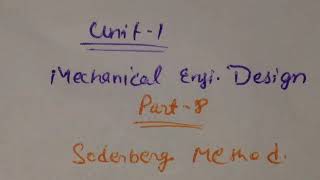 Unit-1
Mechanical Engi. Design
Part-8
Soderberg Method.